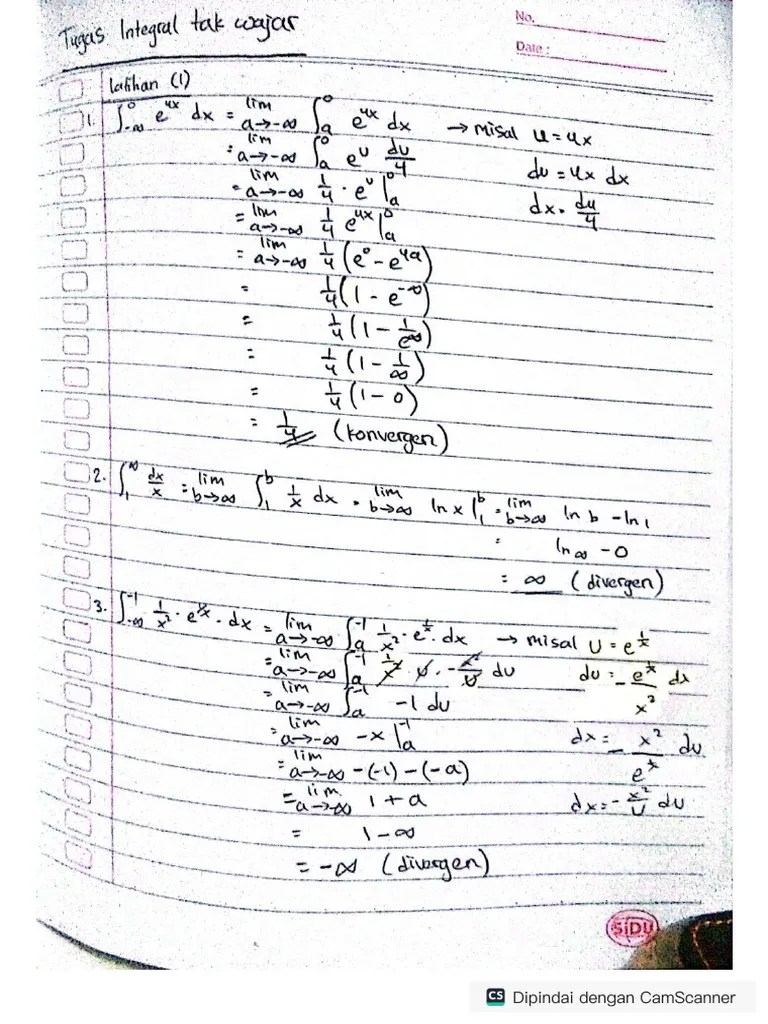 Tugas Integral tak wajar
No.
Date :
latihan (1)
1. ∫_{-∞}^{0} e^{4x} dx = lim_{a→-∞} ∫_{a}^{0} e^{4x} dx → misal u = 4x
= lim_{a→-∞} ∫_{a}^{0} e^{u} du/4 du = 4x dx
= lim_{a→-∞} 1/4 · e^{u} |_{a}^{0} dx = du/4
= lim_{a→-∞} 1/4 e^{4x} |_{a}^{0}
= lim_{a→-∞} 1/4 (e^{0} - e^{4a})
= 1/4 (1 - e^{-∞})
= 1/4 (1 - 1/e^{∞})
= 1/4 (1 - 1/∞)
= 1/4 (1 - 0)
= 1/4 (konvergen)
2. ∫_{1}^{∞} dx/x = lim_{b→∞} ∫_{1}^{b} 1/x dx = lim_{b→∞} ln x |_{1}^{b} = lim_{b→∞} ln b - ln 1
= ln ∞ - 0
= ∞ (divergen)
3. ∫_{-∞}^{-1} 1/x² · e^{1/x} · dx = lim_{a→-∞} ∫_{a}^{-1} 1/x² · e^{1/x} · dx → misal U = e^{1/x}
= lim_{a→-∞} ∫_{a}^{-1} 1/x² · U · -x²/U du du = -e^{1/x}/x² dx
= lim_{a→-∞} ∫_{a}^{-1} -1 du
= lim_{a→-∞} -x |_{a}^{-1} dx = -x²/e^{1/x} du
= lim_{a→-∞} -(-1) - (-a)
= lim_{a→-∞} 1 + a dx = -x²/U du
= 1 - ∞
= -∞ (divergen)
SiDU
CS Dipindai dengan CamScanner